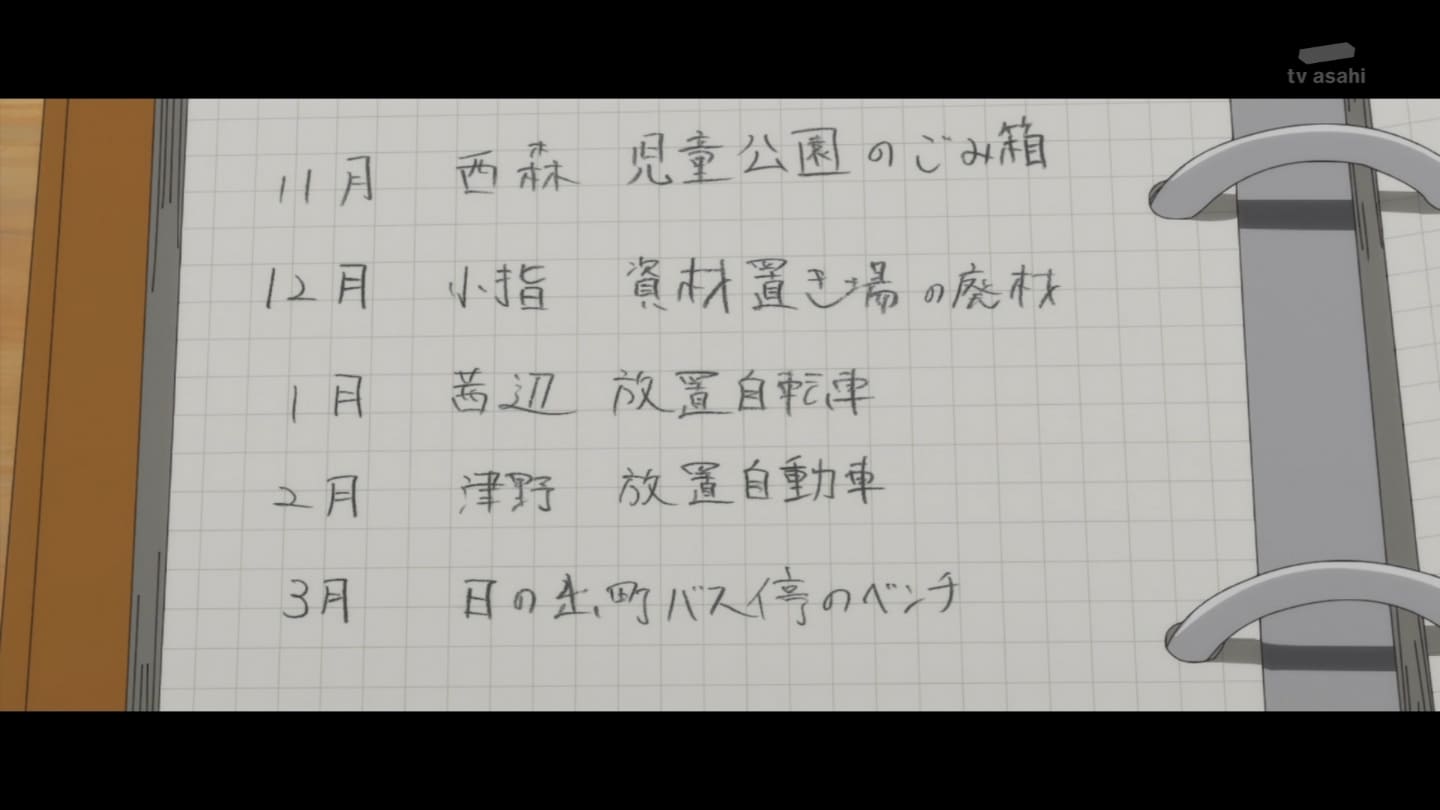 tv asahi
11月 西森 児童公園のごみ箱
12月 小指 資材置き場の廃材
1月 茜辺 放置自転車
2月 津野 放置自動車
3月 日の出町バス停のベンチ